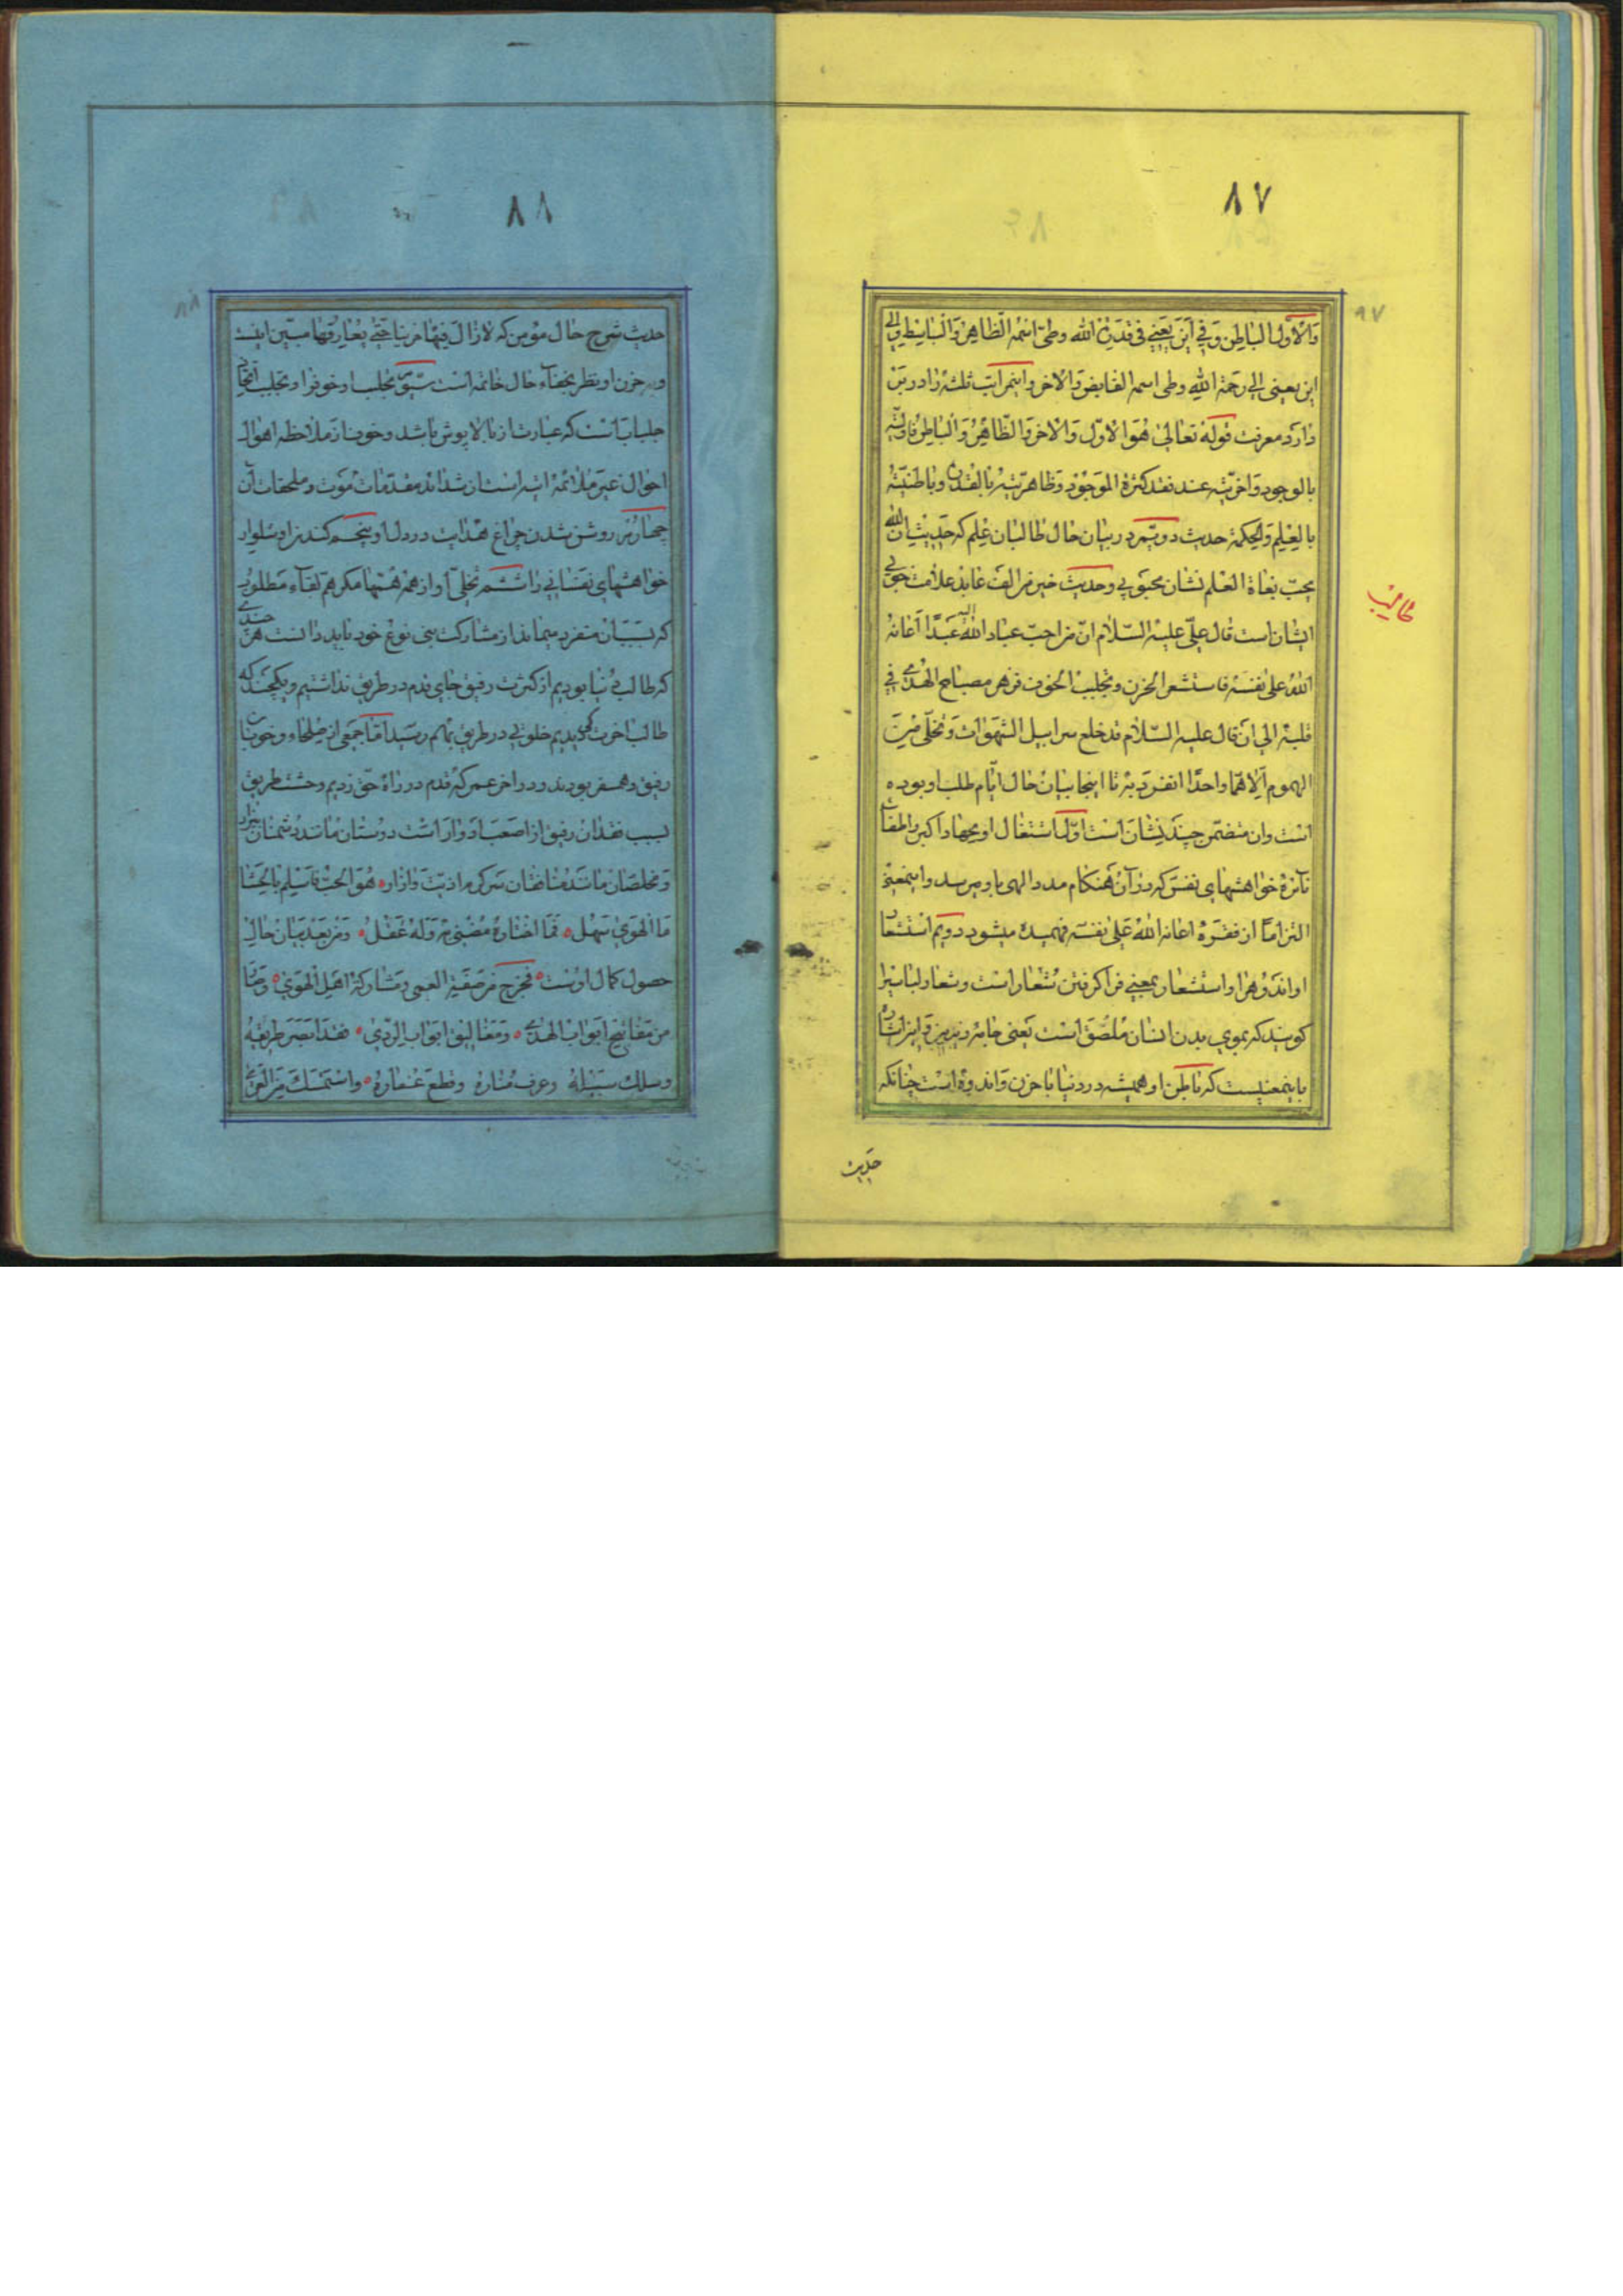 ٨٧
وَالْاَول الباطِن وَفي اَين يَعنى فى قدرة الله وطى اسمه الظاهر وَالباسط والى
اين يعنى الى رَحمة الله وطى اسمه القابض وَالاخر واينمراتب ثلثه را در بين
دارد معرفت قوله تعالى هُوَ الاوّل وَالاخر وَالظّاهِرُ وَالباطِن فاوليّته
بالوجود وَاخريّته عند فقد كثرة الموَجوُد وَظاهريّته بالقدرة وباطنيّته
بالعِلمِ وَالحكمة حديث دويّم در بيان حال طالبان عِلم كه حَديث ان الله
يحبّ بغاة العلم نشان محبوبى وحديث خير من الف عابد علامت خوبى
ايشان است قال علىّ عليه السّلام انّ من احبّ عباد الله اليه عَبدًا اَعانهُ
اللهُ على نفسه فاستشعر الحزن وتجلبب الخوف فزهر مصباح الهُدى فى
قلبه الى ان قال عليه السّلام قد خلع سرابيل الشهَوات وَتخلّى مِنَ
الهموم اِلّا همّا واحدًا انفرَد به تا اينجا بيان حال ايّام طلب او بوده
است وان متضمّن چند نشان است اوّل اشتغال او بجهاد اكبر واطفاى
نآئرهٔ خواهشهاى نفس كه در آن هنكام مدد الهى باو ميرسد واينمعنى
التزامًا از فقرَهٔ اعانه اللهُ عَلى نفسه فهميده ميشود دويّم استشعار
او اندوُه را واستشعار بمعنى فرا كرفتن شعار است وشعار لباسيرا
كويند كه بموى بدن انسان مُلصَق است يَعنى جامه زيرين وَاين اشاره
باينمعنيست كه باطن او هميشه در دنيا با حزن وَاندوه است چنانكه
حديث
طالب
٨٧
٨٨
حديث شرح حال مؤمن كه لا زالَ فيها حزينا حَتّى يُفارِقها مبيّن اينست
وبر حزن او نظر بخفآء حال خاتمه است سيّوّم تجلبب او خوفرا وتجلبب اتّخاذ
جلباب است كه عبارت از بالا پوش باشد وخوف از ملاحظه اهوال
احوال غير ملائمهٔ اتيه است از شدائد مقدّمات مَوت وملحقات آن
چهارُم روشن شدن چراغ هدايت در دل او پنجم كندن او شلوار
خواهشهاى نفسانى را ششم تخلّى او از همّ همّها مكر همّ لقآء مَطلوب
كه بسبب آن متفرد ميماند از مشاركت بنى نوع خود بايد دانست هر چندى
كه طالب دُنيا بوديم از كثرت رفيق جاى قدم در طريق نداشتيم ويكچند كه
طالب اخرت كرديديم خلوتى در طريق بهم رسيد امّا جمعى از صلحاء وخوبان
رفيق وهمسفر بودند ودر اخر عمر كه قدم در راه حقّ زديم وحشت طريق
بسبب فقدان رفيق از اصعَب ادوار است دوُستان مانند دُشمنان بيزار
وَمخلصان مانند مُنافقان سَركرم اذيّت وَازار هُوَ الحبّ فاسلِم بالحشا
مَا الهوى سَهل فمَا اختارهُ مُضنى به وَلهُ عَقلُ وَمن بعد بيان حال
حصول كمال اوُست فخرج من صفة العمى ومشاركة اهل الهوى وصار
من مَفاتيح ابواب الهدى وَمغاليق ابواب الرّدى فقد ابصَر طريقهُ
وسلك سَبيلهُ وعرف منارهُ وقطع غمارهُ واستمسَك مِن العُرى
٨٨